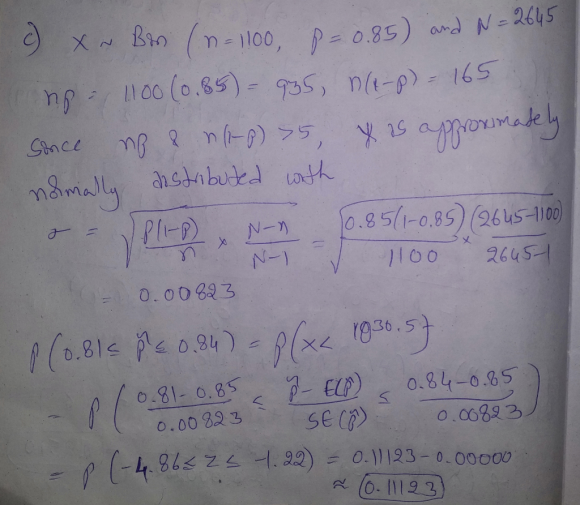 c) X ~ Bin (n=1100, p=0.85) and N=2645
np = 1100(0.85) = 935, n(1-p) = 165
Since np & n(1-p) >5, X is approximately
normally distributed with
σ = √(p(1-p)/n × (N-n)/(N-1)) = √(0.85(1-0.85)/1100 × (2645-1100)/(2645-1))
= 0.00823
P(0.81≤ p̂ ≤ 0.84) = P(X<
= P((0.81-0.85)/0.00823 ≤ (p̂ - E(p̂))/SE(p̂) ≤ (0.84-0.85)/0.00823)
= P(-4.86≤ Z ≤ -1.22) = 0.11123-0.00000
≈ 0.11123